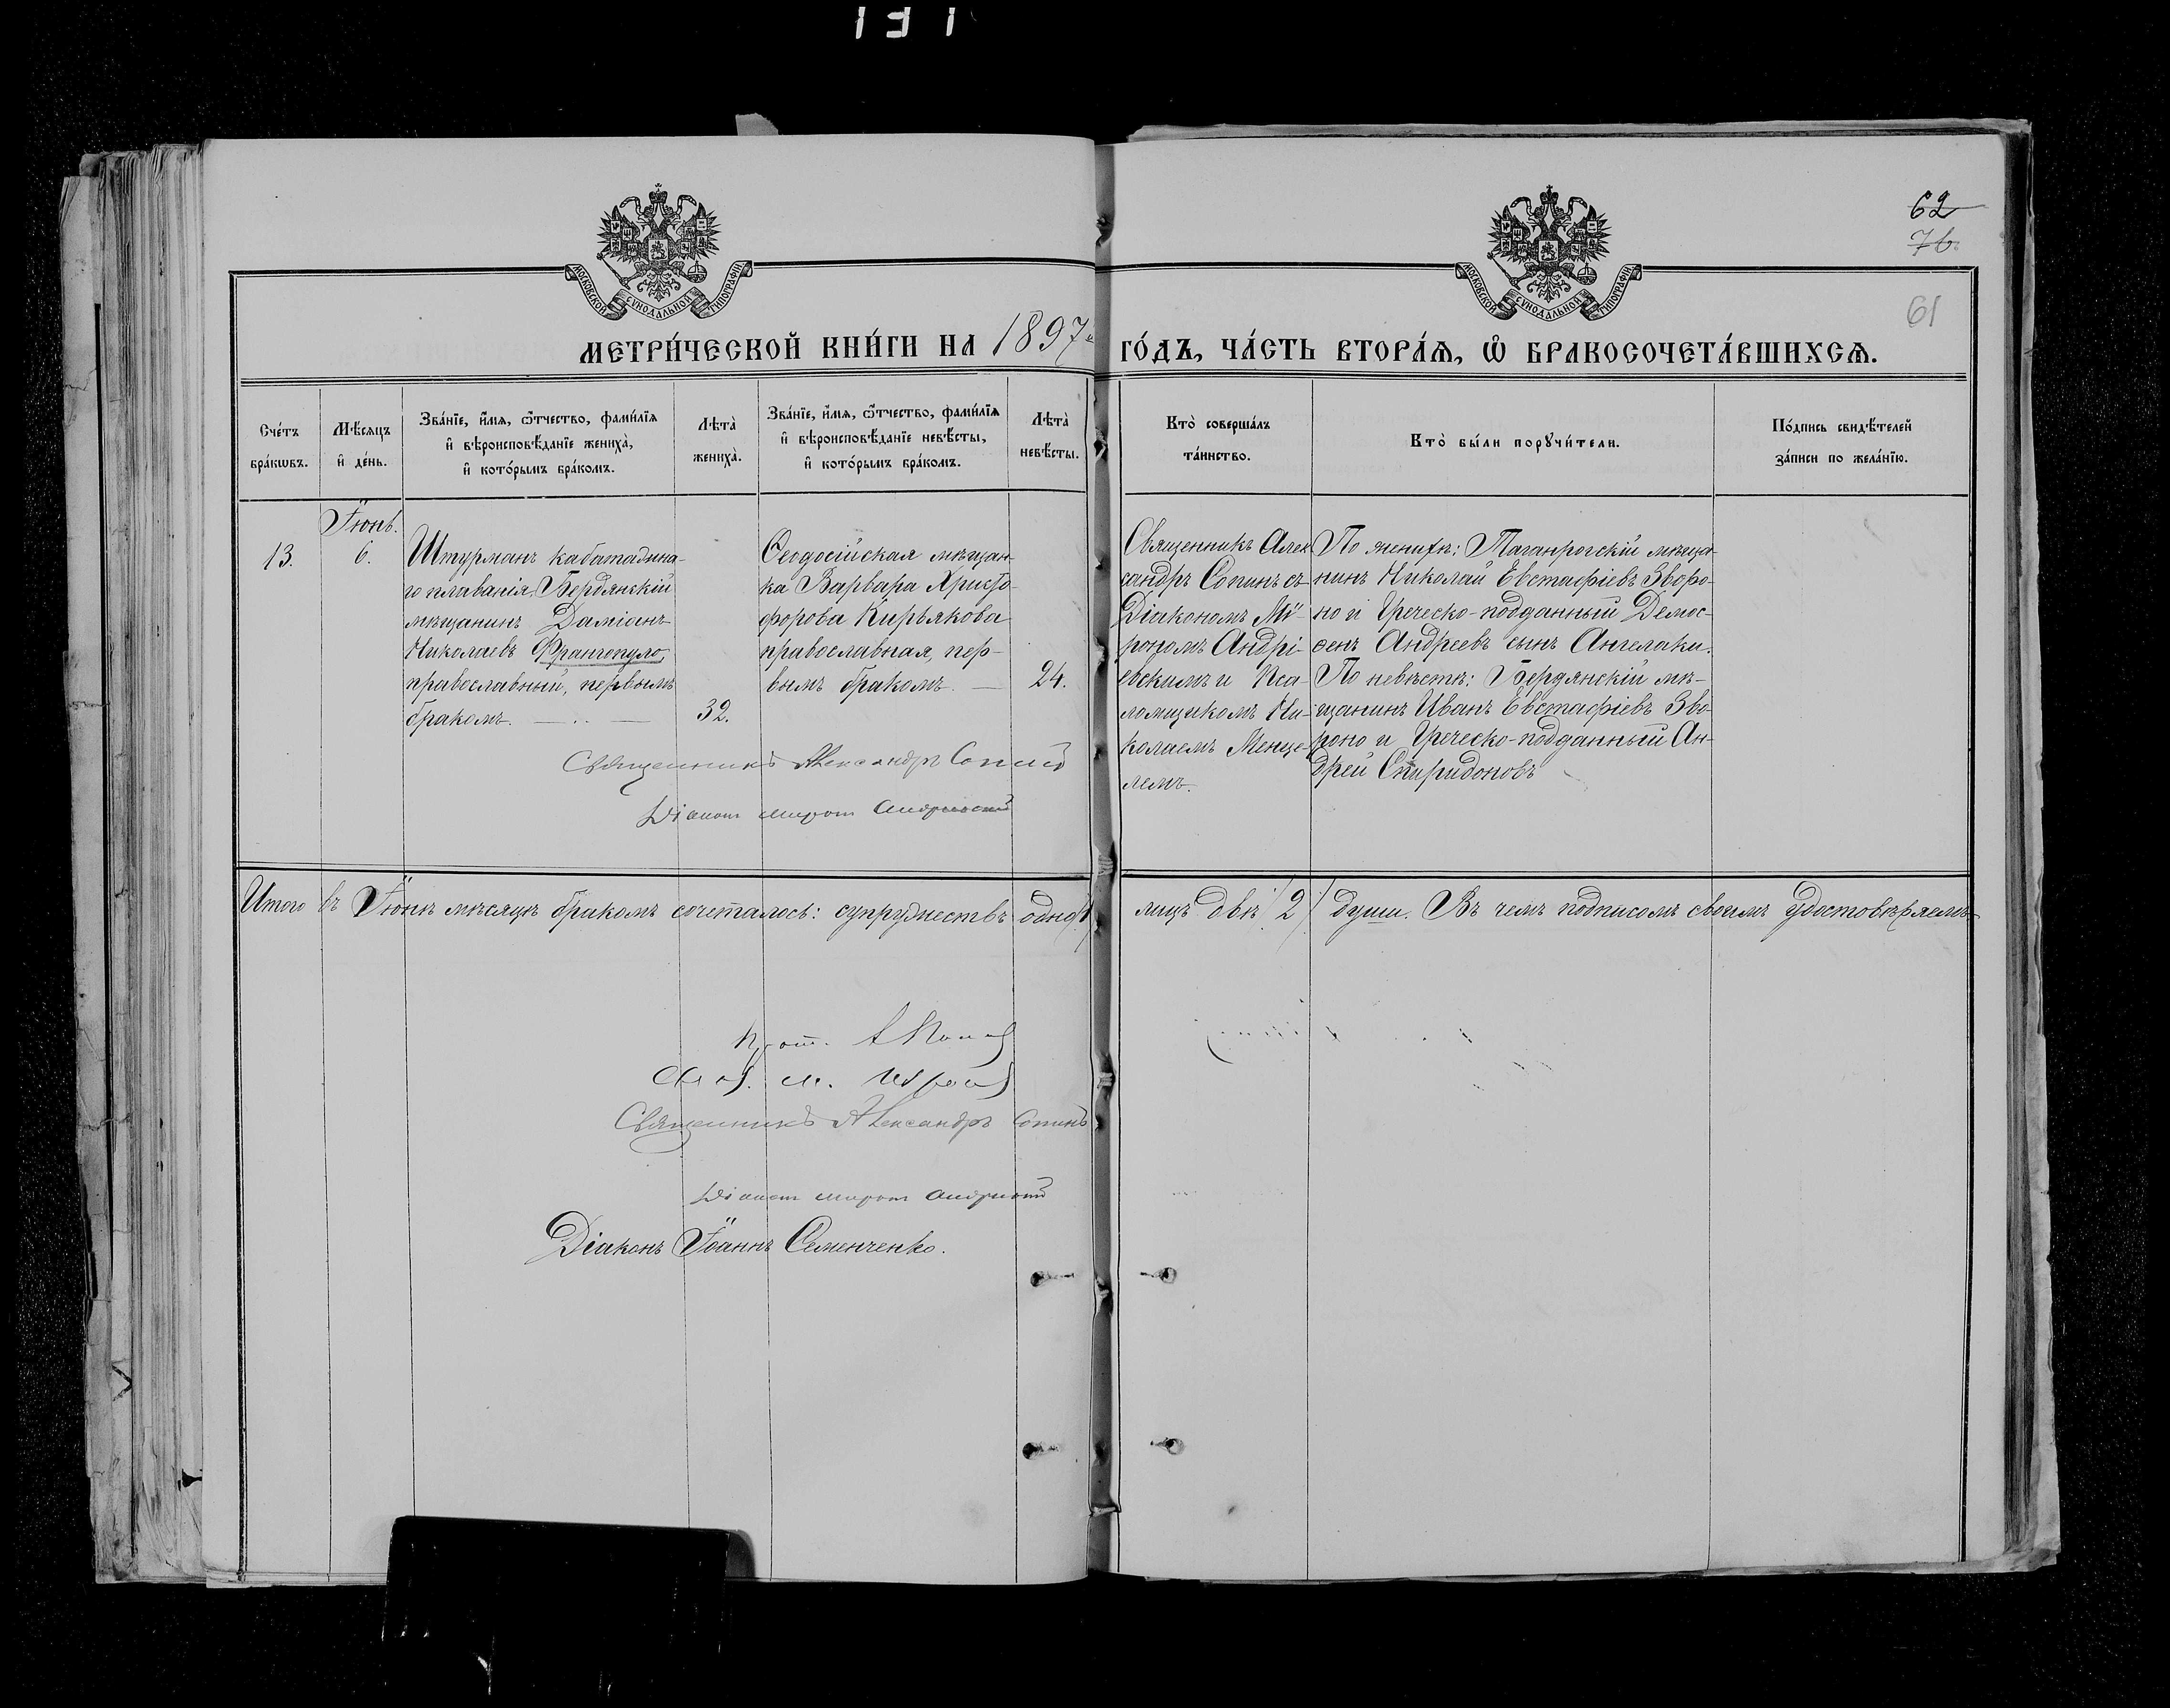 131
62
76.
61
МОСКОВСКОЙ СѴНОДАЛЬНОЙ ТИПОГРАФІИ
МОСКОВСКОЙ СѴНОДАЛЬНОЙ ТИПОГРАФІИ
МЕТРИ́ЧЕСКОЙ КНИ́ГИ НА 1897 ГО́ДЪ, ЧА́СТЬ ВТОРА́Ѧ, Ѽ БРАКОСОЧЕТА́ВШИХСѦ.
Сче́тъ
бра́кѡвъ.
Мѣ́сѧцъ
и҆ де́нь.
Зва́нїе, и҆́мѧ, ѻ҆́тчество, фами́лїѧ
и҆ вѣроисповѣ́данїе жениха̀,
и҆ кото́рымъ бра́комъ.
Лѣта̀
жениха̀.
Зва́нїе, и҆́мѧ, ѻ҆́тчество, фами́лїѧ
и҆ вѣроисповѣ́данїе невѣ́сты,
и҆ кото́рымъ бра́комъ.
Лѣта̀
невѣ́сты.
Кто̀ соверша́лъ
та́инство.
Кто̀ бы́ли порꙋчи́тели.
По́дпись свидѣ́телей
за́писи по жела́нїю.
13.
Іюнь.
6.
Штурманъ каботажна-
го плаванія, Бердянскій
мѣщанинъ Даміанъ
Николаевъ Франгопуло,
православный, первымъ
бракомъ.
32.
Ѳеодосійская мѣщан-
ка Варвара Христо-
форова Кирьякова
православная, пер-
вымъ бракомъ.
24.
Священникъ Алек
сандръ Сопинъ съ
Діакономъ Мѵ-
рономъ Андрі-
евскимъ и Пса-
ломщикомъ Ни-
колаемъ Менце-
лемъ.
По женихѣ: Таганрогскій мѣща-
нинъ Николай Евстафіевъ Зворо-
но и Греческо-подданный Демос-
ѳенъ Андреевъ сынъ Ангелаки.
По невѣстѣ: Бердянскій мѣ-
щанинъ Иванъ Евстафіевъ Зво-
роно и Греческо-подданный Ан-
дрей Спиридоновъ
Священникъ Александръ Сопинъ
Діаконъ Миронъ Андріевскій
Итого въ Іюнѣ мѣсяцѣ бракомъ сочеталось: супружествъ одно /1/ лицъ двѣ /2/ души. Въ чемъ подписомъ своимъ удостовѣряемъ
Прот. А
Свящ. М.
Священникъ Александръ Сопинъ
Діаконъ Миронъ Андріевскій
Діаконъ Іоаннъ Семенченко.